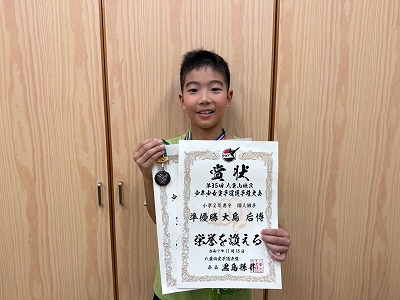 賞状
第35回 八重山地区
少年少女空手道選手権大会
小学2年男子 個人組手
準優勝 大島 后博
栄誉を讃える
令和7年11月16日
八重山空手道連盟
会長